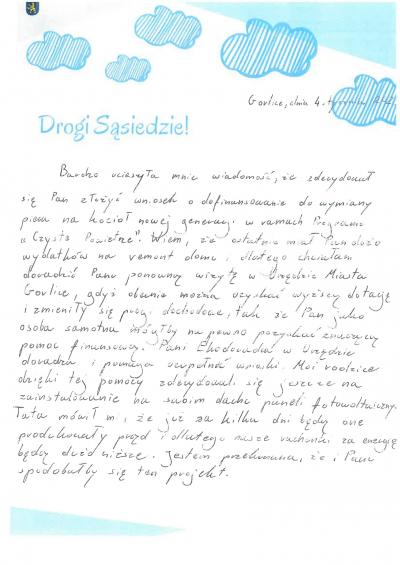 Gorlice, dnia 4. stycznia
Drogi Sąsiedzie!
Bardzo ucieszyła mnie wiadomość, że zdecydował
się Pan złożyć wniosek o dofinansowanie do wymiany
pieca na kocioł nowej generacji w ramach Programu
"Czyste Powietrze". Wiem, że ostatnio miał Pan dużo
wydatków na remont domu i dlatego chciałam
doradzić Panu ponowną wizytę w Urzędzie Miasta
Gorlice, gdyż obecnie można uzyskać wyższą dotację
i zmieniły się progi dochodowe, tak że Pan jako
osoba samotna mógłby na pewno pozyskać znaczącą
pomoc finansową. Pani Ekodoradca w Urzędzie
doradza i pomaga wypełniać wnioski. Moi rodzice
dzięki tej pomocy zdecydowali się jeszcze na
zainstalowanie na swoim dachu paneli fotowoltaicznych.
Tata mówił mi, że już za kilka dni będą one
produkowały prąd i dlatego nasze rachunki za energię
będą dużo niższe. Jestem przekonana, że i Panu
spodobałby się ten projekt.